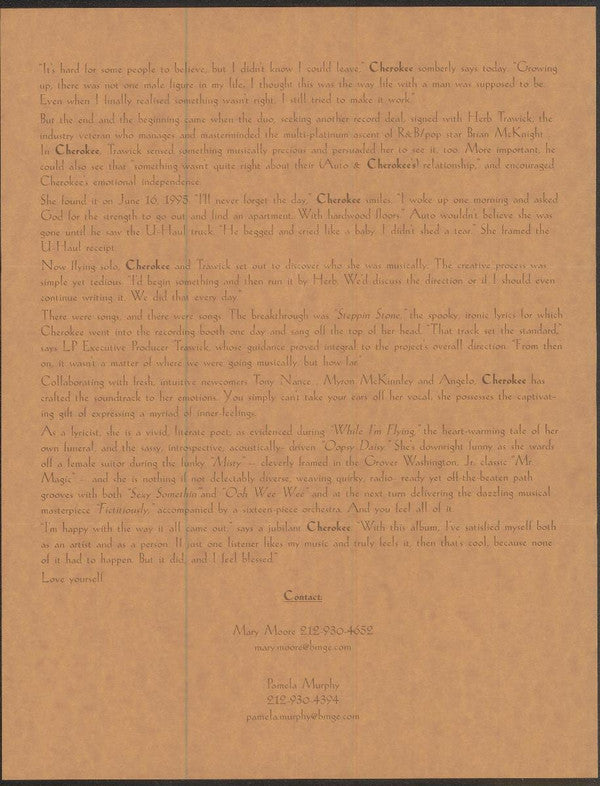 "It's hard for some people to believe, but I didn't know I could leave," Cherokee somberly says today. "Growing
up, there was not one male figure in my life, I thought this was the way life with a man was supposed to be.
Even when I finally realised something wasn't right, I still tried to make it work."
But the end and the beginning came when the duo, seeking another record deal, signed with Herb Trawick, the
industry veteran who manages and masterminded the multi-platinum ascent of R&B/pop star Brian McKnight.
In Cherokee, Trawick sensed something musically precious and persuaded her to see it, too. More important, he
could also see that "something wasn't quite right about their (Auto & Cherokee's) relationship," and encouraged
Cherokee's emotional independence.
She found it on June 16, 1995. "I'll never forget the day," Cherokee smiles. "I woke up one morning and asked
God for the strength to go out and find an apartment. With hardwood floors." Auto wouldn't believe she was
gone until he saw the U-Haul truck. "He begged and cried like a baby. I didn't shed a tear." She framed the
U-Haul receipt.
Now flying solo, Cherokee and Trawick set out to discover who she was musically. The creative process was
simple yet tedious. "I'd begin something and then run it by Herb. We'd discuss the direction or if I should even
continue writing it. We did that every day."
There were songs, and there were songs. The breakthrough was "Steppin Stone," the spooky, ironic lyrics for which
Cherokee went into the recording booth one day and sang off the top of her head. "That track set the standard,"
says LP Executive Producer Trawick, whose guidance proved integral to the project's overall direction. "From then
on, it wasn't a matter of where we were going musically, but how far."
Collaborating with fresh, intuitive newcomers Tony Nance, Myron McKinnley and Angelo, Cherokee has
crafted the soundtrack to her emotions. You simply can't take your ears off her vocal, she possesses the captivat-
ing gift of expressing a myriad of inner-feelings.
As a lyricist, she is a vivid, literate poet, as evidenced during "While I'm Flying," the heart-warming tale of her
own funeral, and the sassy, introspective, acoustically- driven "Oopsy Daisy." She's downright funny as she wards
off a female suitor during the funky "Misty" -- cleverly framed in the Grover Washington, Jr. classic "Mr.
Magic" -- and she is nothing if not delectably diverse, weaving quirky, radio- ready yet off-the-beaten path
grooves with both "Sexy Somethin'and "Ooh Wee Wee" and at the next turn delivering the dazzling musical
masterpiece "Fictitiously," accompanied by a sixteen-piece orchestra. And you feel all of it.
"I'm happy with the way it all came out," says a jubilant Cherokee. "With this album, I've satisfied myself both
as an artist and as a person. If just one listener likes my music and truly feels it, then that's cool, because none
of it had to happen. But it did, and I feel blessed."
Love yourself.
Contact:
Mary Moore 212-930-4652
mary.moore@bmge.com
Pamela Murphy
212-930-4394
pamela.murphy@bmge.com